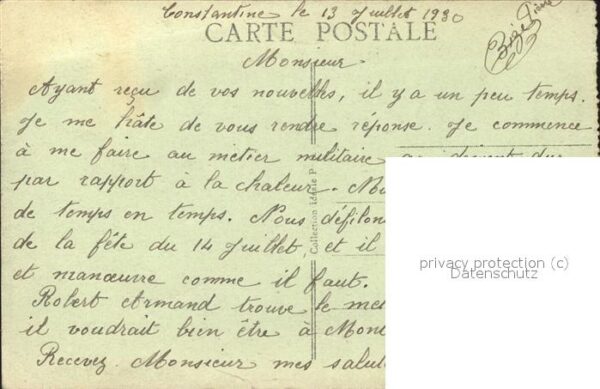 Constantine le 13 Juillet 1930
CARTE POSTALE
Monsieur.
Ayant reçu de vos nouvelles, il y a un peu temps.
Je me hâte de vous rendre réponse. Je commence
à me faire au metier militaire
par rapport à la chaleur.
de temps en temps. Nous défilon
de la fête du 14 Juillet, et il
et manœuvre comme il faut.
Robert Armand trouve le
il voudrait bien être à
Recevez Monsieur mes salut
Collection Idéale P
privacy protection (c)
Datenschutz